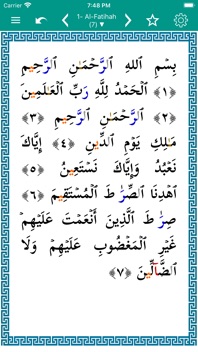 7:48 PM
1- Al-Fatihah
(7) ▼
بِسْمِ ٱللَّهِ ٱلرَّحْمَٰنِ ٱلرَّحِيمِ
﴿١﴾ ٱلْحَمْدُ لِلَّهِ رَبِّ ٱلْعَٰلَمِينَ
﴿٢﴾ ٱلرَّحْمَٰنِ ٱلرَّحِيمِ ﴿٣﴾
مَٰلِكِ يَوْمِ ٱلدِّينِ ﴿٤﴾ إِيَّاكَ
نَعْبُدُ وَإِيَّاكَ نَسْتَعِينُ ﴿٥﴾
ٱهْدِنَا ٱلصِّرَٰطَ ٱلْمُسْتَقِيمَ ﴿٦﴾
صِرَٰطَ ٱلَّذِينَ أَنْعَمْتَ عَلَيْهِمْ
غَيْرِ ٱلْمَغْضُوبِ عَلَيْهِمْ وَلَا
ٱلضَّآلِّينَ ﴿٧﴾